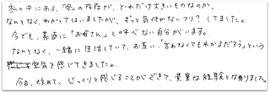 私の中にある、「母」の存在が、どれだけ大きいものなのか、
なんとなく、わかってはいましたが、ずっと気付かないフリ?してました。
今でも、素直に「お母さん」と呼べない自分がいます。
なんとなく、一緒に生活していて、お互い「言わなくてもわかるだろう」という
空気を感じてきました。
今日、改めて、じっくりと感じることができて、貴重な経験となりました。